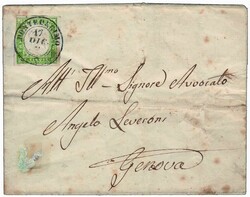 17
DIC
All' Ill.mo Signore Avvocato
Angelo Leveroni
Genova